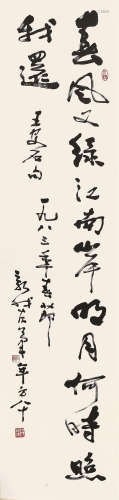 春风又绿江南岸明月何时照
我还
王安石句
一九八三年春节
年方八十